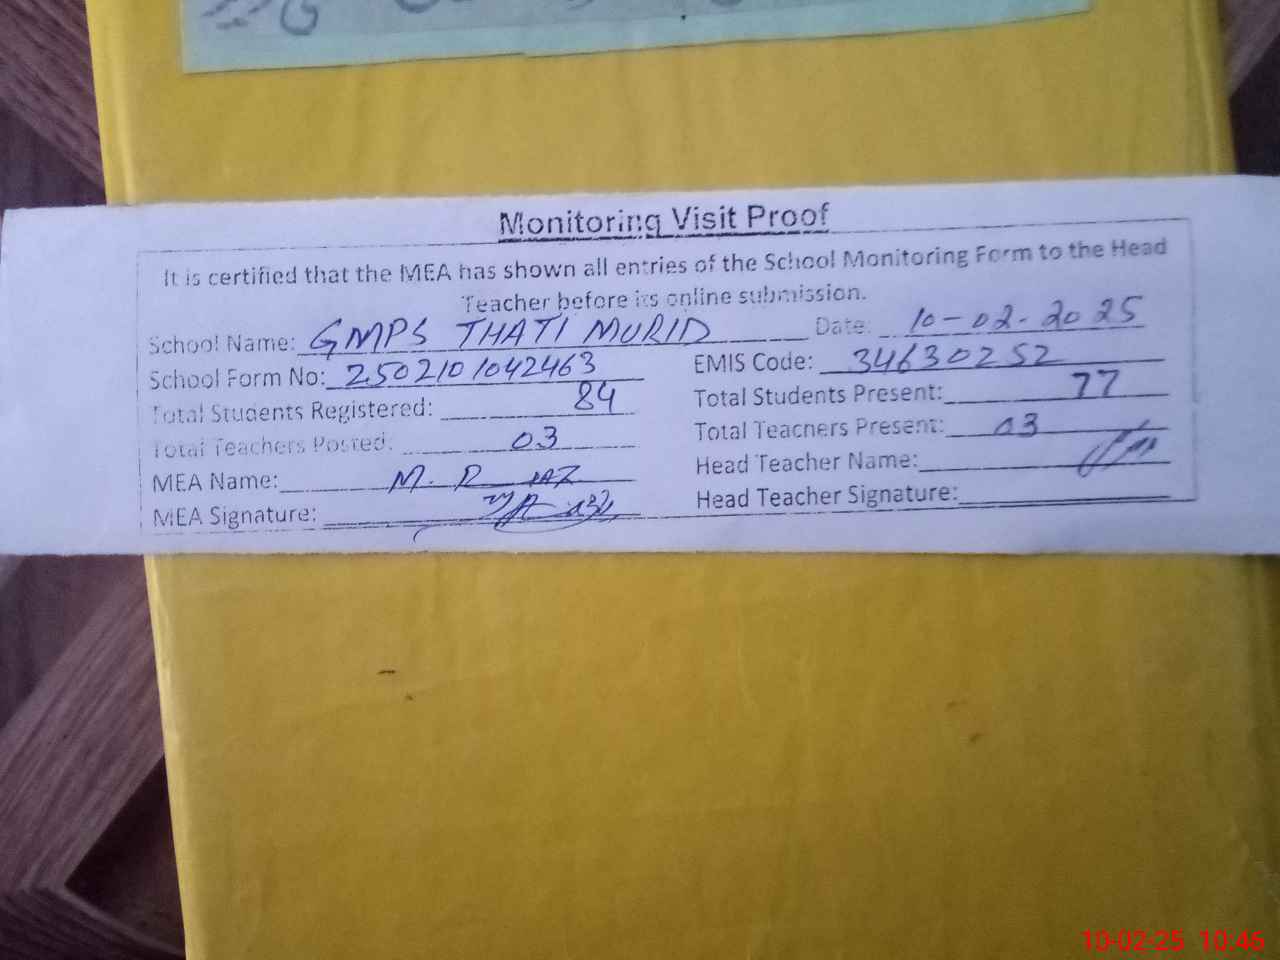 Monitoring Visit Proof
It is certified that the MEA has shown all entries of the School Monitoring Form to the Head
Teacher before its online submission.
School Name: GMPS THATI MURID Date: 10-02-2025
School Form No: 2502101042463 EMIS Code: 34630252
Total Students Registered: 84 Total Students Present: 77
Total Teachers Posted: 03 Total Teachers Present: 03
MEA Name: M. R Head Teacher Name:
MEA Signature: Head Teacher Signature:
10-02-25 10:46